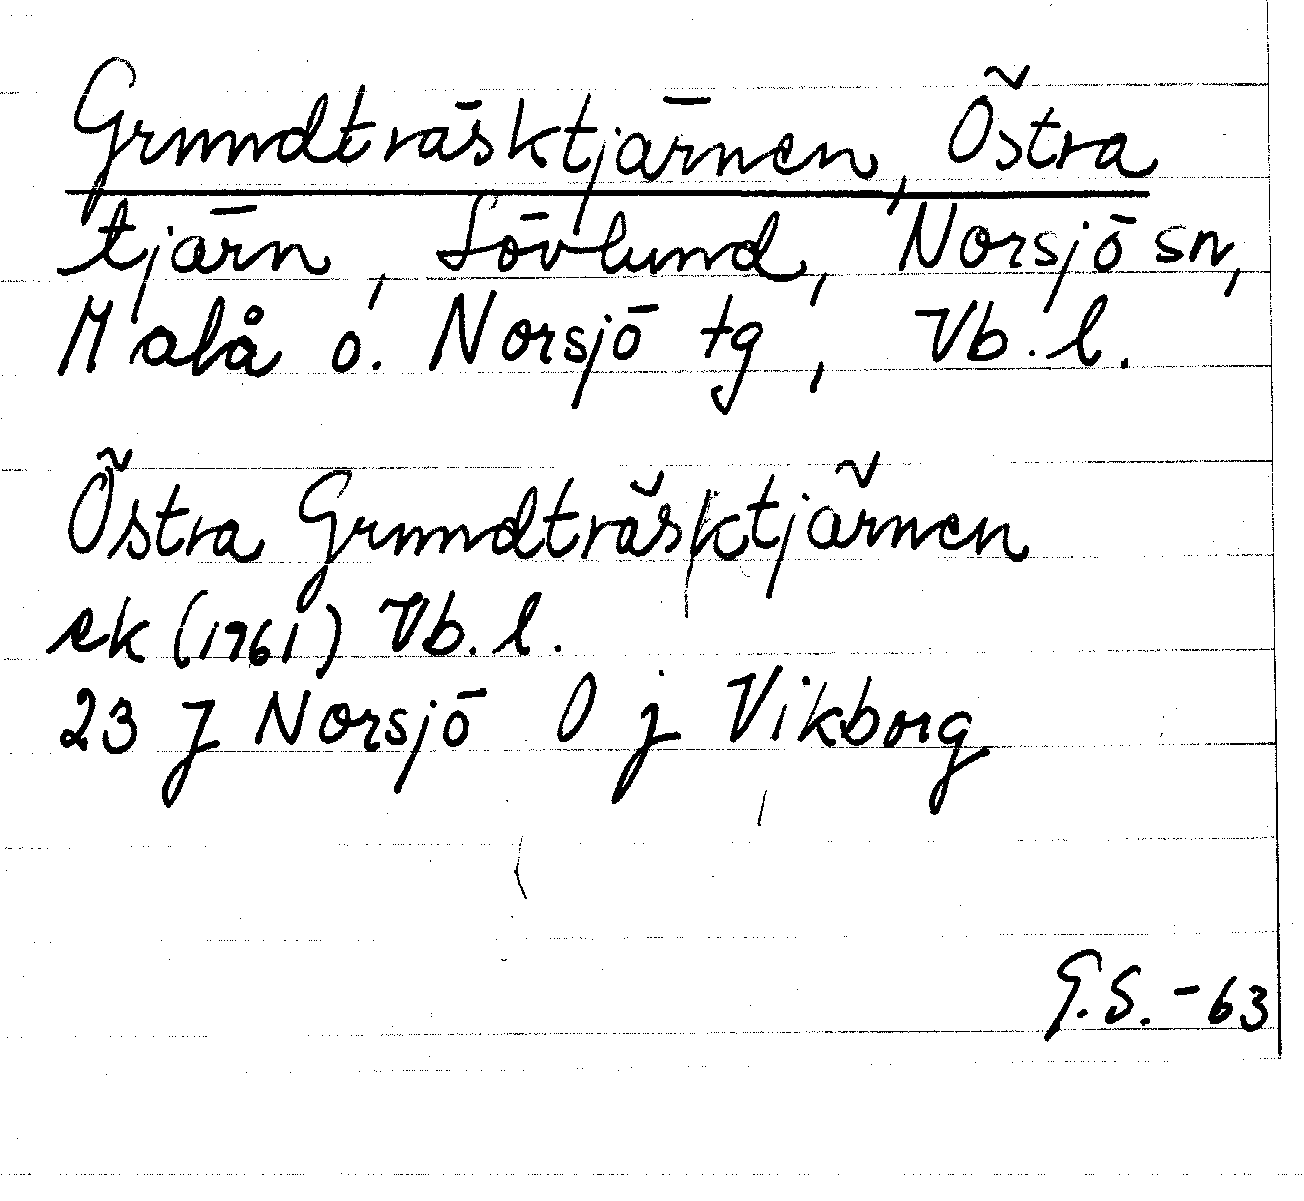 Grundträsktjärnen, Östra
tjärn, Lövlund, Norsjö sn,
Malå o. Norsjö tg, Vb. l.
Östra Grundträsktjärnen
ek (1961) Vb. l.
23 J Norsjö 0 j Vikborg
G.S. -63